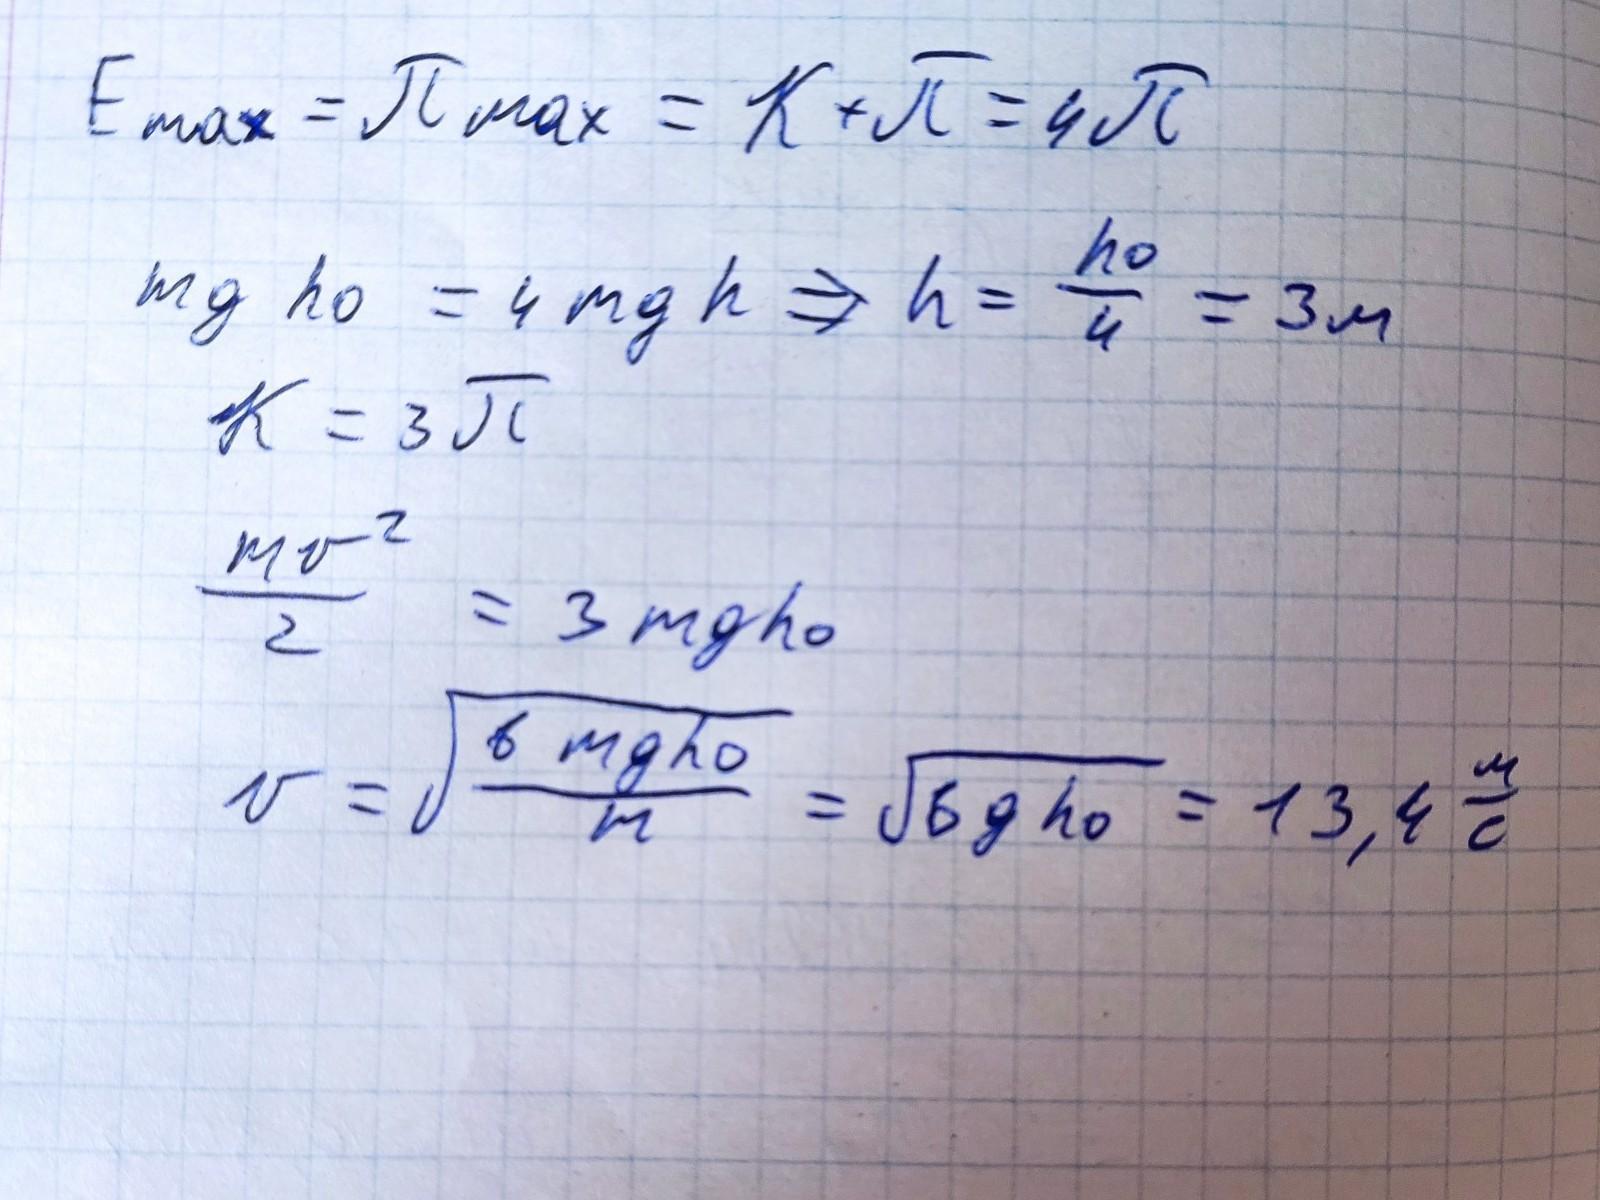 E max = П max = К + П = 4П
mg h₀ = 4 mg h ⇒ h = h₀/4 = 3м
К = 3П
mv²/2 = 3 mgh₀
v = √(6 mgh₀/m) = √(6gh₀) = 13,4 м/с